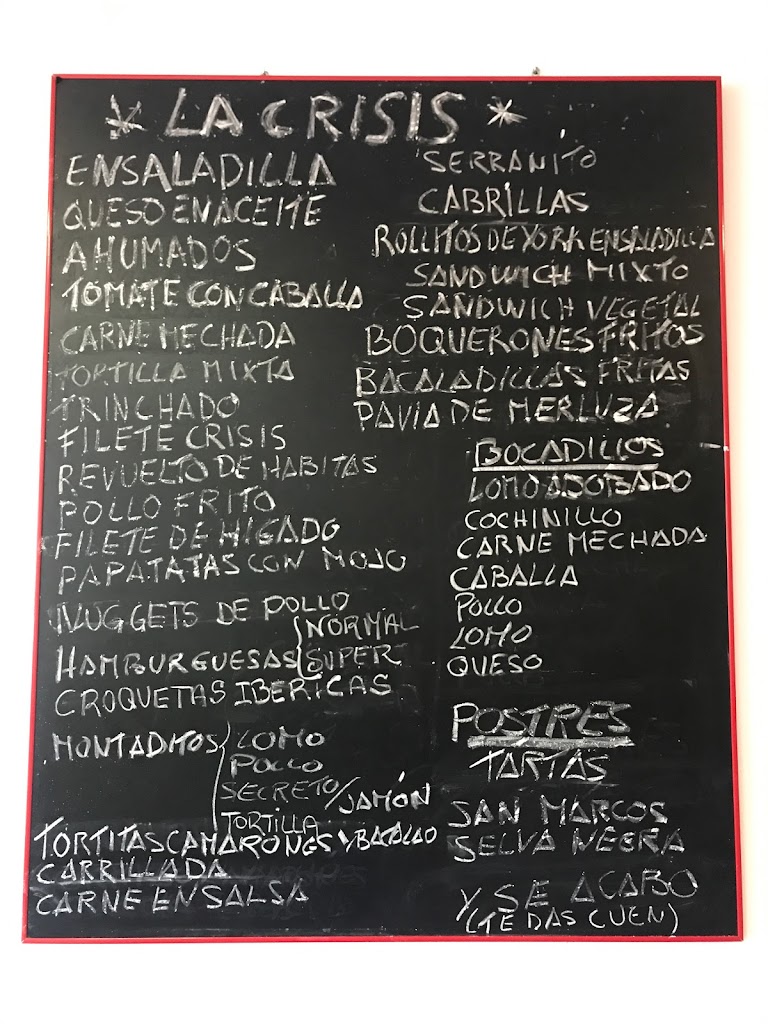 * LA CRISIS *
ENSALADILLA
QUESO EN ACEITE
AHUMADOS
TOMATE CON CABALLA
CARNE MECHADA
TORTILLA MIXTA
TRINCHADO
FILETE CRISIS
REVUELTO DE HABITAS
POLLO FRITO
FILETE DE HIGADO
PAPATATAS CON MOJO
NUGGETS DE POLLO
HAMBURGUESAS { NORMAL
SUPER
CROQUETAS IBERICAS
MONTADITOS { LOMO
POLLO
SECRETO / JAMÓN
TORTILLA
TORTITAS CAMARONES Y BACALAO
CARRILLADA
CARNE EN SALSA
SERRANITO
CABRILLAS
ROLLITOS DE YORK ENSALADILLA
SANDWICH MIXTO
SANDWICH VEGETAL
BOQUERONES FRITOS
BACALADILLAS FRITAS
PAVIA DE MERLUZA
BOCADILLOS
LOMO ADOBADO
COCHINILLO
CARNE MECHADA
CABALLA
POLLO
LOMO
QUESO
POSTRES
TARTAS
SAN MARCOS
SELVA NEGRA
Y SE ACABO
(TE DAS CUEN)